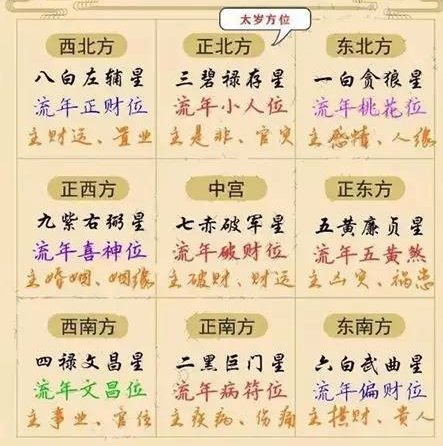 太岁方位
西北方
八白左辅星
流年正财位
主财运、置业
正北方
三碧禄存星
流年小人位
主是非、官灾
东北方
一白贪狼星
流年桃花位
主感情、人缘
正西方
九紫右弼星
流年喜神位
主婚姻、姻缘
中宫
七赤破军星
流年破财位
主破财、财运
正东方
五黄廉贞星
流年五黄煞
主凶灾、祸患
西南方
四禄文昌星
流年文昌位
主事业、官位
正南方
二黑巨门星
流年病符位
主疾病、伤痛
东南方
六白武曲星
流年偏财位
主横财、贵人